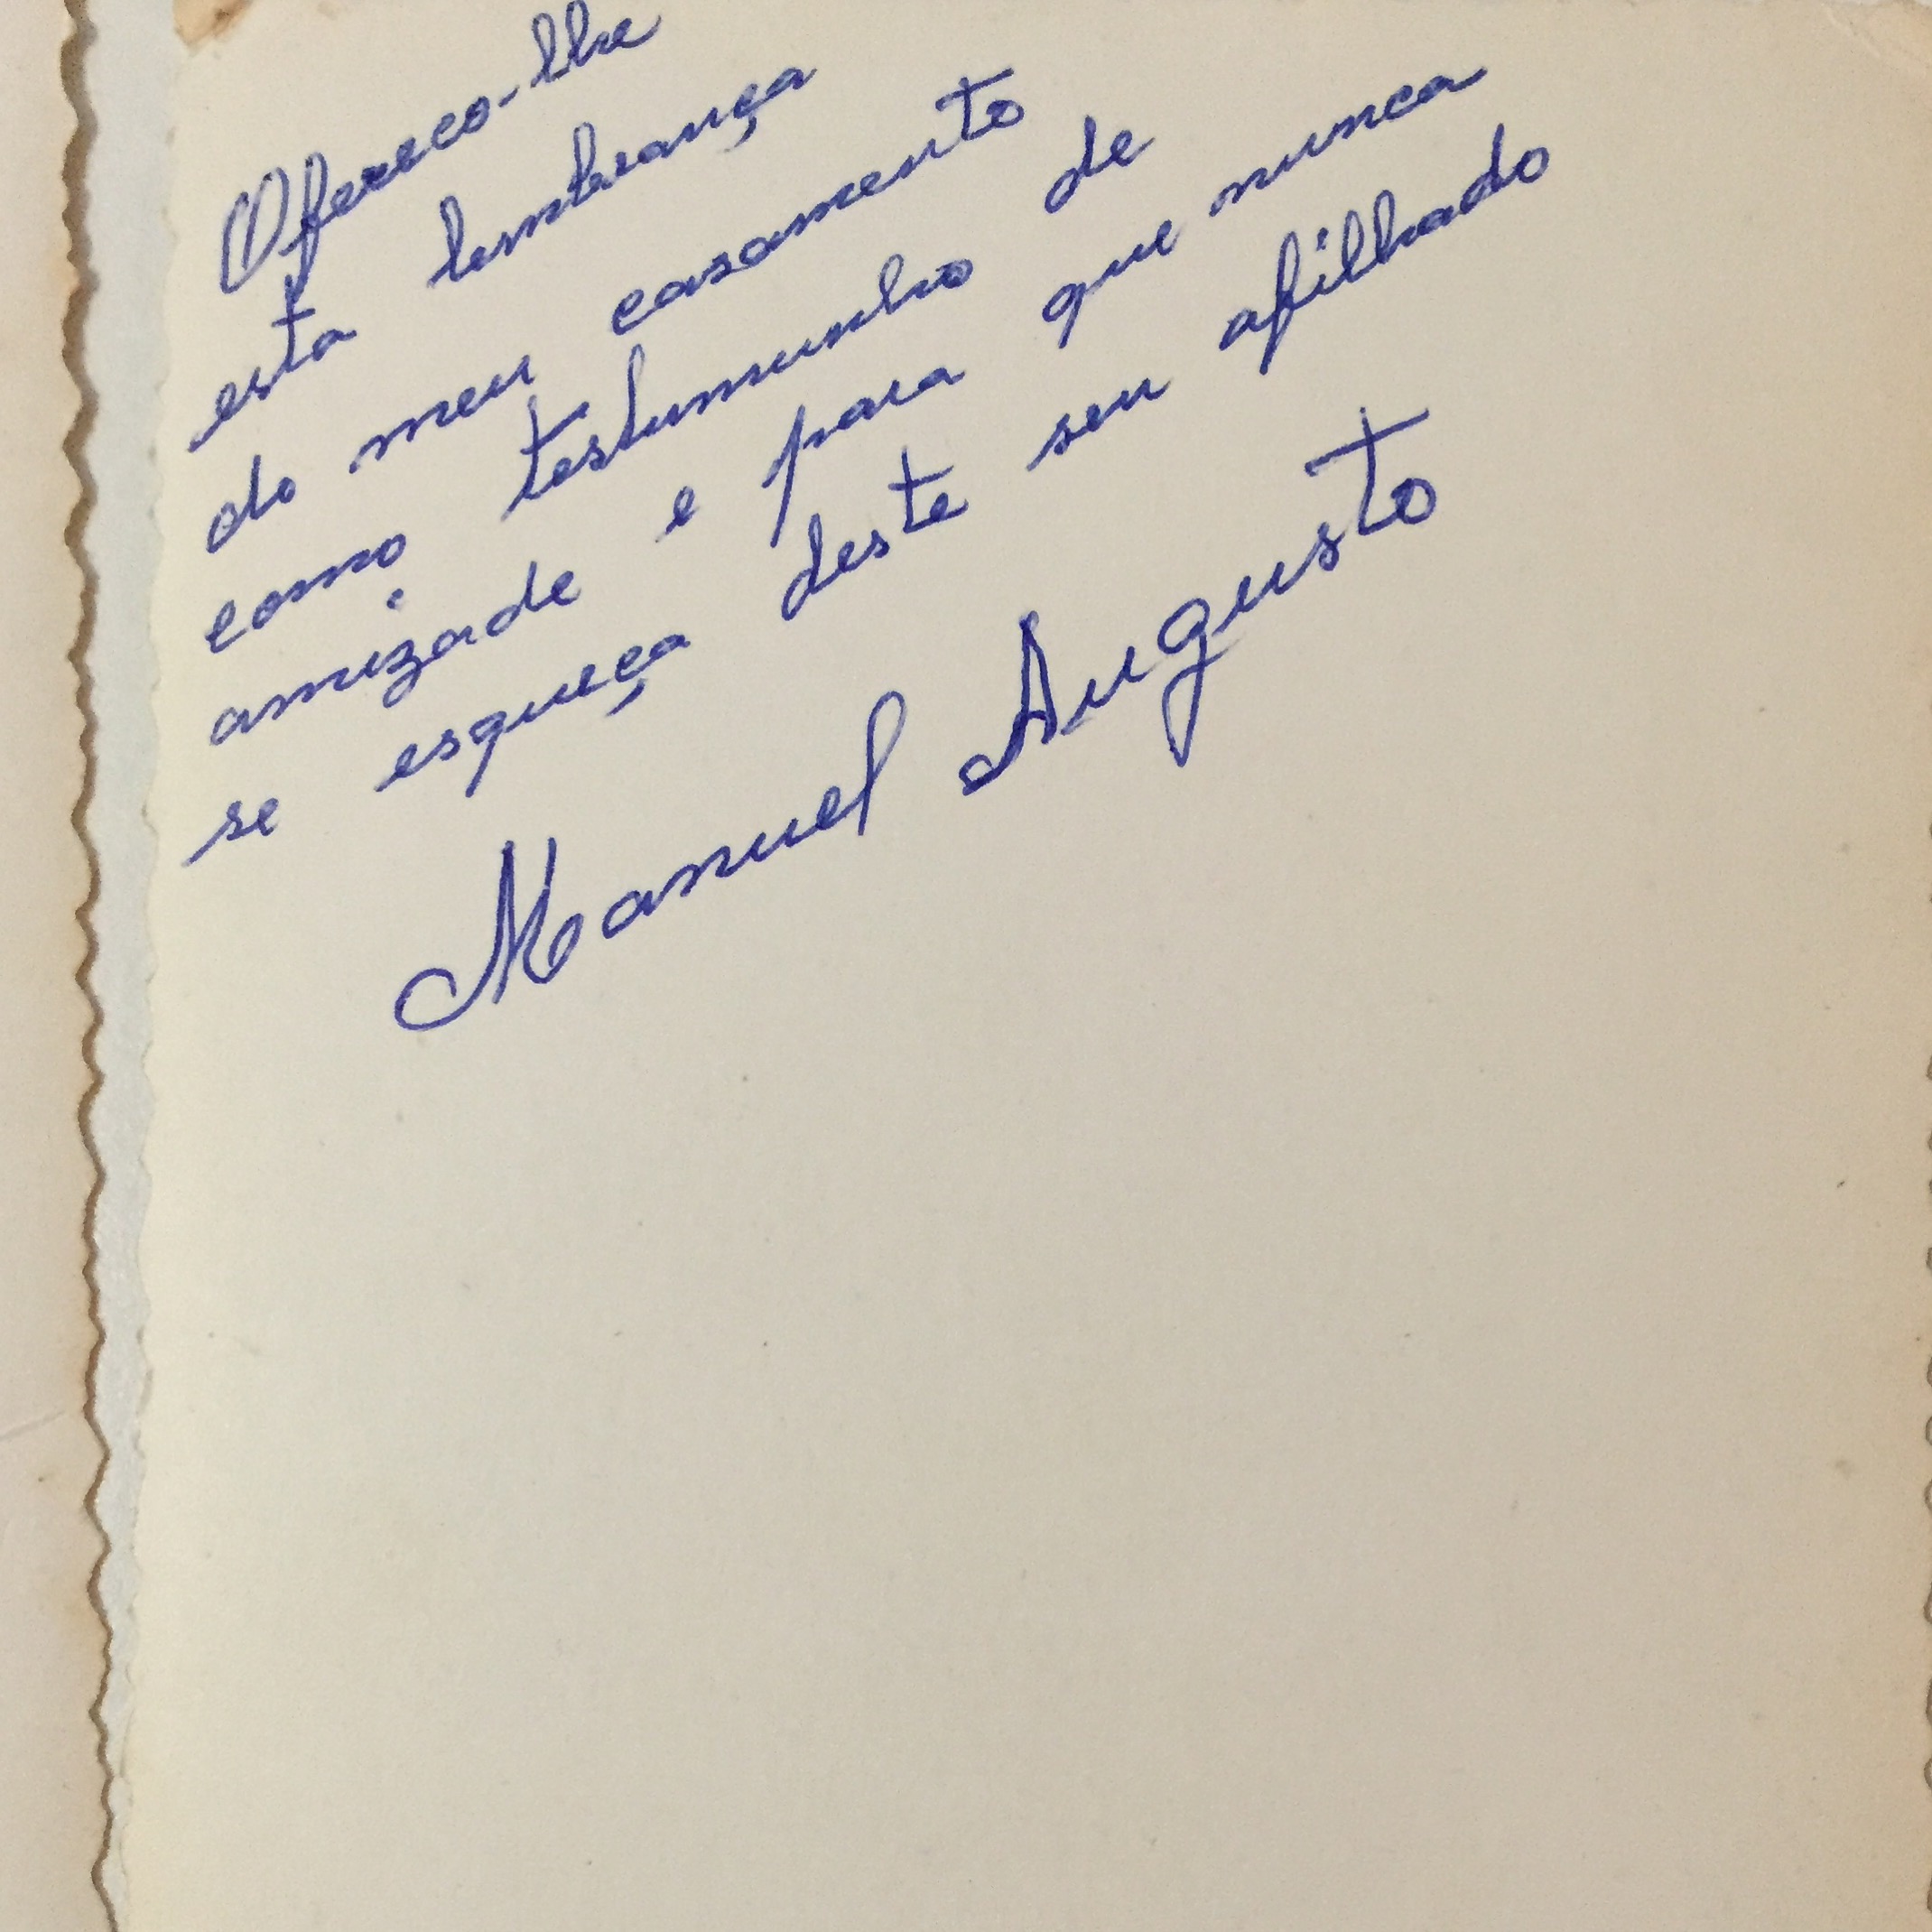 Ofereco-lhe
esta lembrança
do meu casamento
como testumunho de
amizade e para que nunca
se esqueça deste seu afilhado
Manuel Augusto